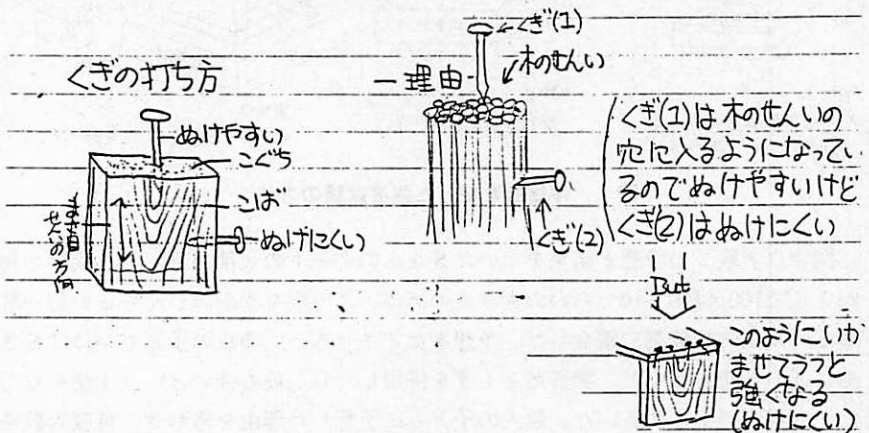 くぎの打ち方
ぬけやすい
こぐち
こば
ぬけにくい
まさ目
せんいの方向
理由
くぎ(1)
木のせんい
くぎ(2)
くぎ(1)は木のせんいの
穴に入るようになってい
るのでぬけやすいけど
くぎ(2)はぬけにくい
But
このようにいか
ませてうつと
強くなる
(ぬけにくい)